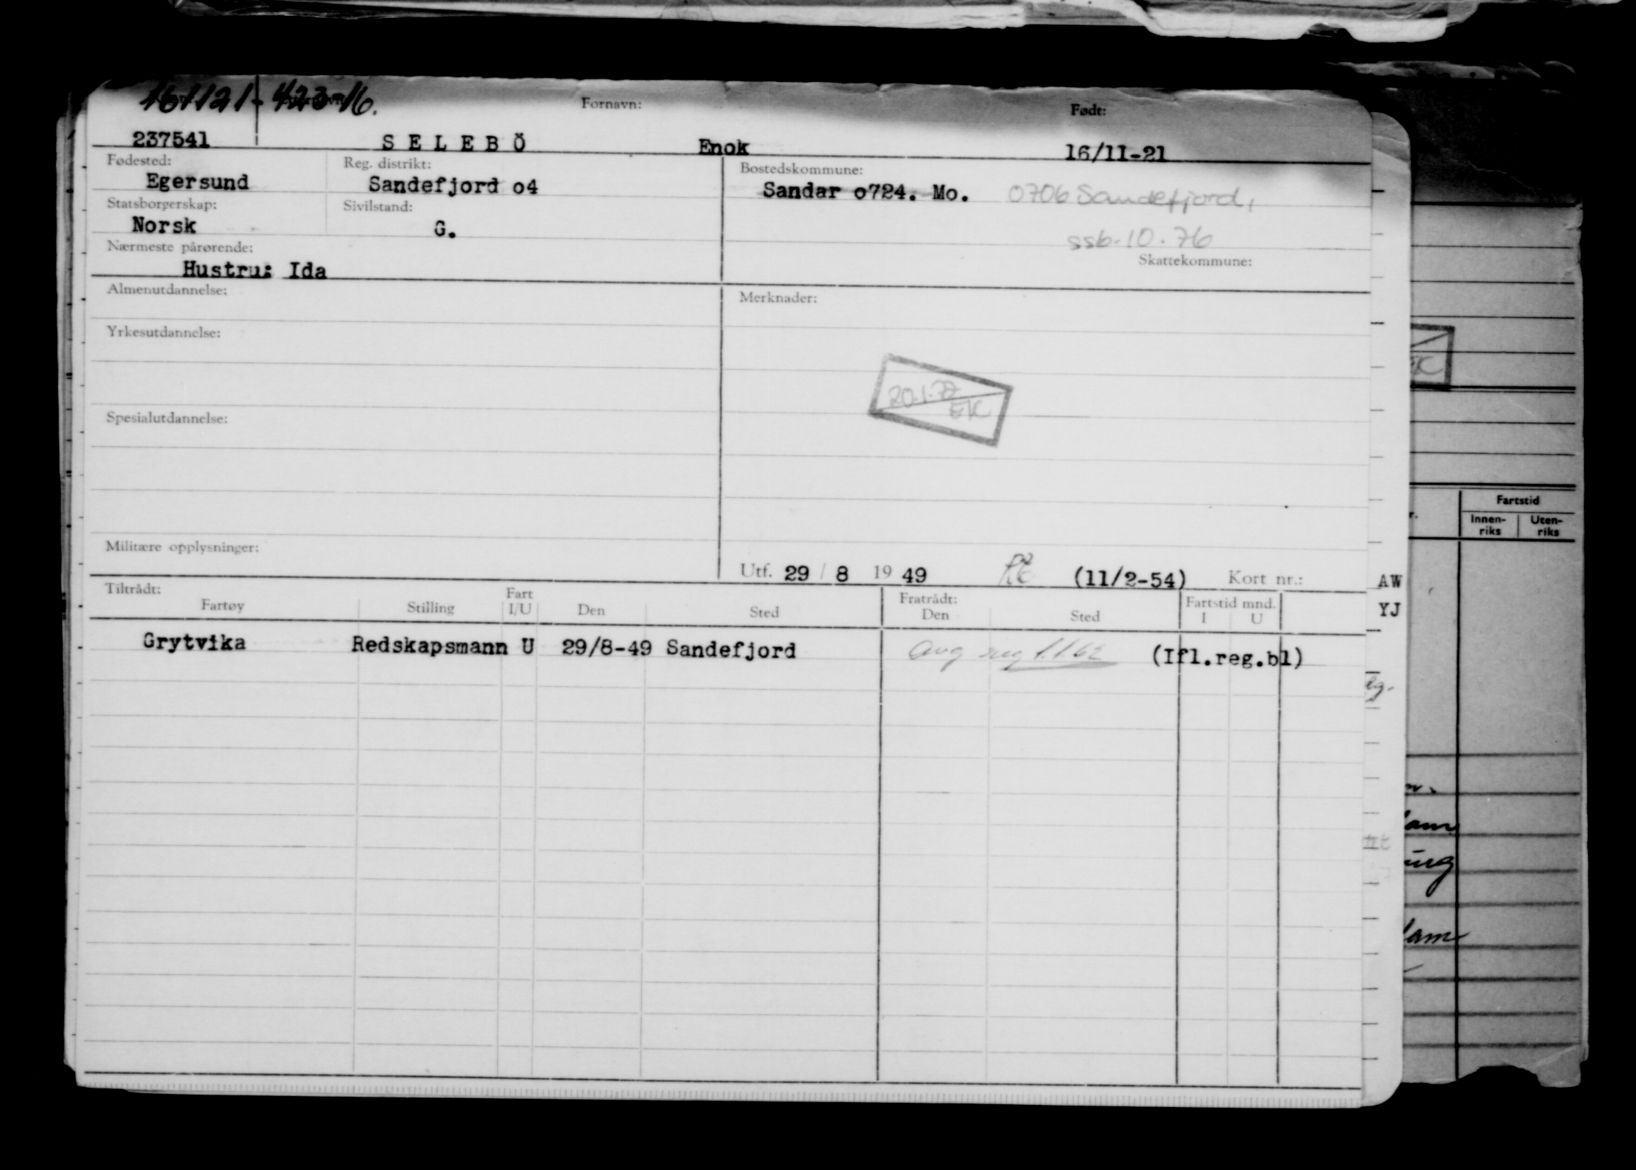 161121-42376.
Fornavn:
Født:
237541
S E L E B Ö
Enok
16/11-21
Fødested:
Reg. distrikt:
Bostedskommune:
Egersund
Sandefjord o4
Sandar o724. Mo.
0706 Sandefjord,
Statsborgerskap:
Sivilstand:
Norsk
G.
ssb-10.76
Nærmeste pårørende:
Skattekommune:
Hustru: Ida
Almenutdannelse:
Merknader:
Yrkesutdannelse:
20.1.77
EK
Spesialutdannelse:
Militære opplysninger:
Utf. 29 / 8 19 49
(11/2-54)
Kort nr.:
AW
Tiltrådt:
Fartøy
Stilling
Fart
I/U
Den
Sted
Fratrådt:
Den
Sted
Fartstid mnd.
I
U
YJ
Grytvika
Redskapsmann U
29/8-49 Sandefjord
avg reg 1.1.62
(Ifl.reg.bl)
Fartstid
Innen-
riks
Uten-
riks